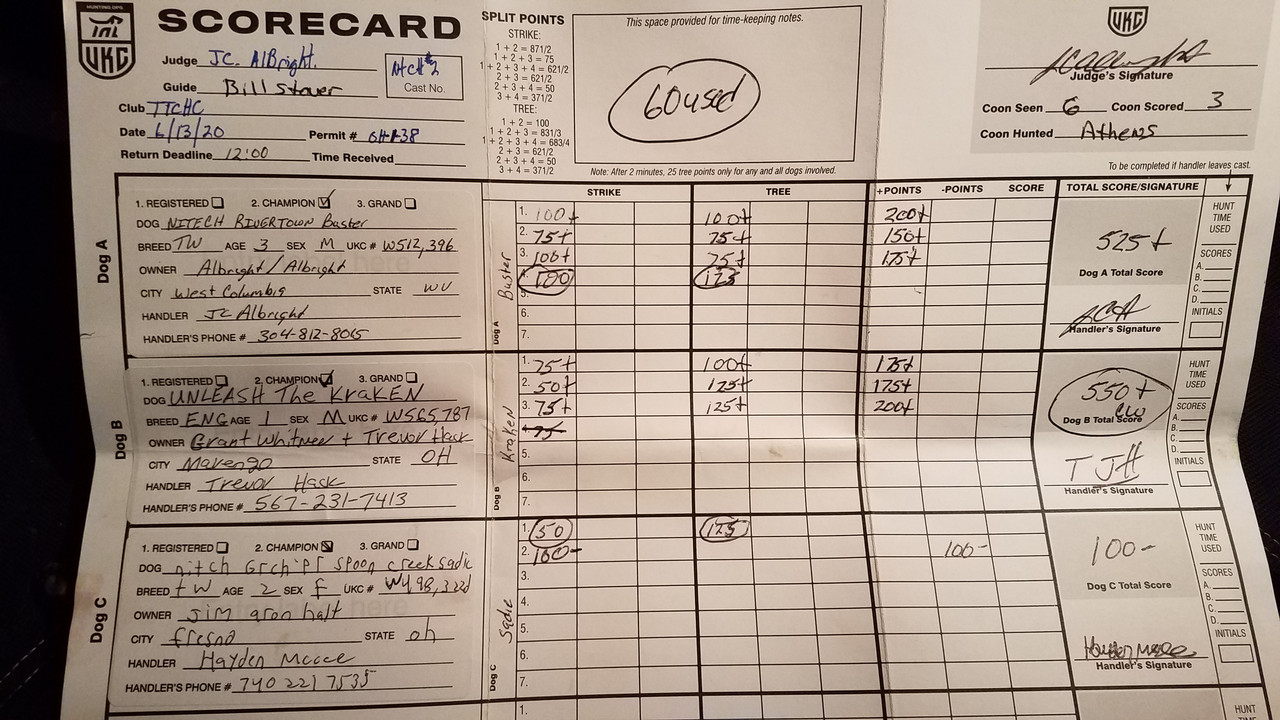 HUNTING OPS
UKC
SCORECARD
Judge JC. AlBright.
NTCH#2
Cast No.
Guide Bill Stover
Club TTCHC
Date 6/13/20 Permit #
Return Deadline 12:00 Time Received
SPLIT POINTS
STRIKE:
1 + 2 = 871/2
1 + 2 + 3 = 75
1 + 2 + 3 + 4 = 621/2
2 + 3 = 621/2
2 + 3 + 4 = 50
3 + 4 = 371/2
TREE:
1 + 2 = 100
1 + 2 + 3 = 831/3
1 + 2 + 3 + 4 = 683/4
2 + 3 = 621/2
2 + 3 + 4 = 50
3 + 4 = 371/2
This space provided for time-keeping notes.
60 used
Note: After 2 minutes, 25 tree points only for any and all dogs involved.
UKC
Judge's Signature
Coon Seen 6 Coon Scored 3
Coon Hunted Athens
To be completed if handler leaves cast.
STRIKE TREE +POINTS -POINTS SCORE TOTAL SCORE/SIGNATURE
Dog A
1. REGISTERED 2. CHAMPION 3. GRAND
DOG NITECH RIVERTOWN Buster
BREED TW AGE 3 SEX M UKC # W512,396
OWNER Albright/Albright
CITY West Columbia STATE WV
HANDLER JC Albright
HANDLER'S PHONE # 304-812-8065
Dog A Buster
1. 100+ 100+ 200+
2. 75+ 75+ 150+
3. 100+ 75+ 175+
4. 100 125
5.
6.
7.
525+
Dog A Total Score
Handler's Signature
HUNT TIME USED
SCORES
A.
B.
C.
D.
INITIALS
Dog B
1. REGISTERED 2. CHAMPION 3. GRAND
DOG UNLEASH The KraKEN
BREED ENG AGE 1 SEX M UKC # W565,787
OWNER Grant Whitmer + Trevor Hack
CITY Marengo STATE OH
HANDLER Trevor Hack
HANDLER'S PHONE # 567-231-7413
Dog B Kraken
1. 75+ 100+ 175+
2. 50+ 125+ 175+
3. 75+ 125+ 200+
4. 75
5.
6.
7.
550+
CW
Dog B Total Score
TJH
Handler's Signature
HUNT TIME USED
SCORES
A.
B.
C.
D.
INITIALS
Dog C
1. REGISTERED 2. CHAMPION 3. GRAND
DOG nitch Grch 'PR' spoon creek sadie
BREED tw AGE 2 SEX f UKC #
OWNER jim aronhalt
CITY fresno STATE oh
HANDLER Hayden Mcgee
HANDLER'S PHONE # 740 221 7535
Dog C Sadie
1. 50 125
2. 100- 100-
3.
4.
5.
6.
7.
100-
Dog C Total Score
Handler's Signature
HUNT TIME USED
SCORES
A.
B.
C.
D.
INITIALS
1.
HUNT
TIME